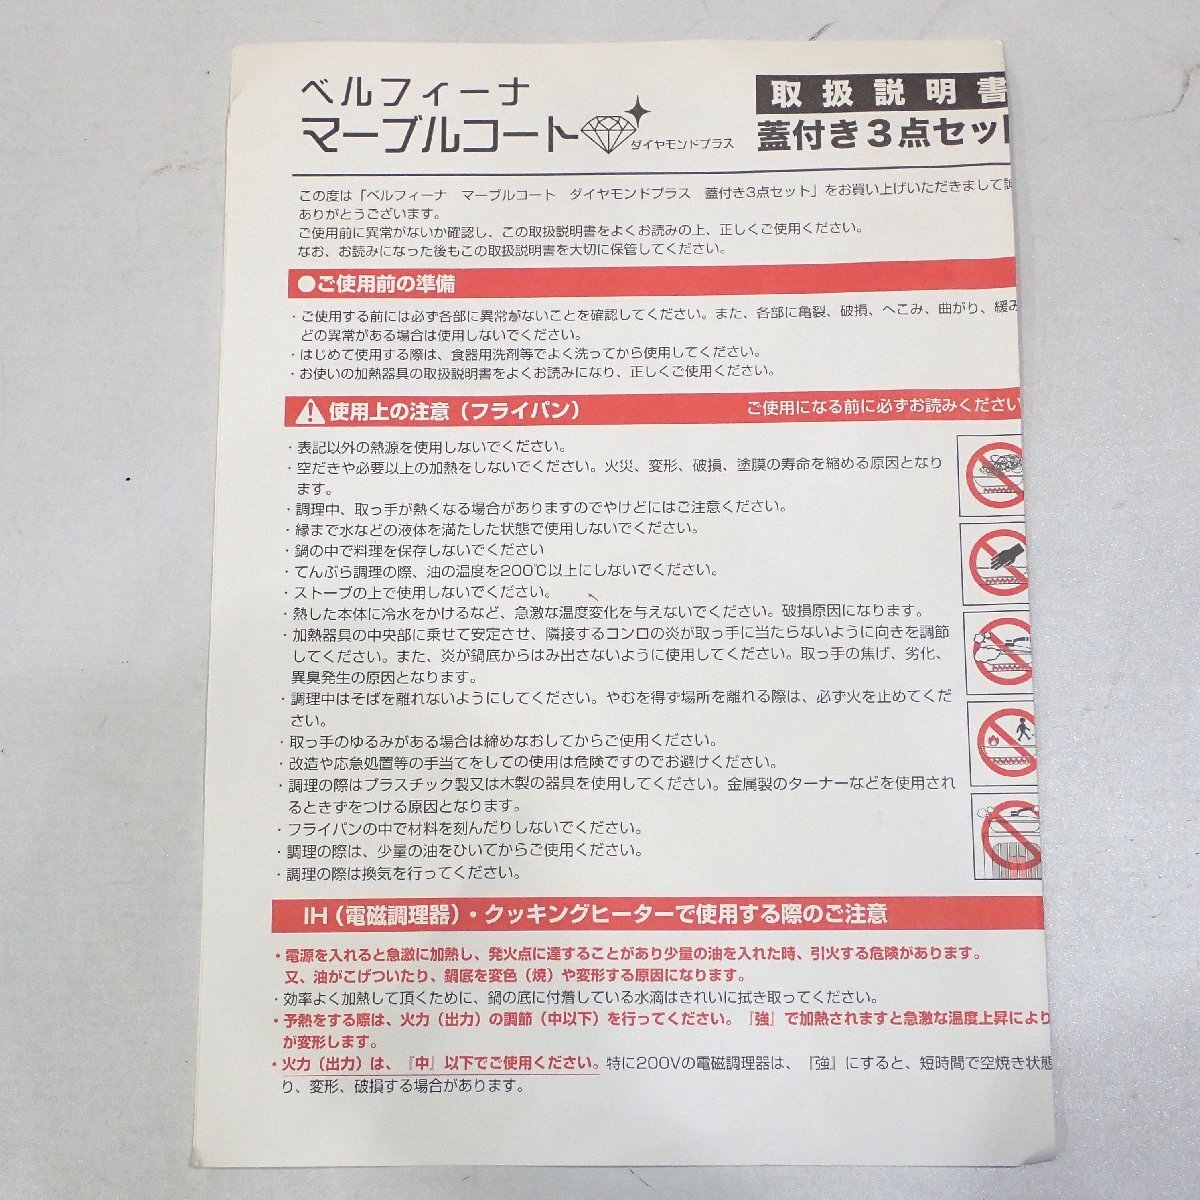 ベルフィーナ
マーブルコート ダイヤモンドプラス
取扱説明書
蓋付き3点セット
この度は「ベルフィーナ　マーブルコート　ダイヤモンドプラス　蓋付き3点セット」をお買い上げいただきまして誠
ありがとうございます。
ご使用前に異常がないか確認し、この取扱説明書をよくお読みの上、正しくご使用ください。
なお、お読みになった後もこの取扱説明書を大切に保管してください。
●ご使用前の準備
・ご使用する前には必ず各部に異常がないことを確認してください。また、各部に亀裂、破損、へこみ、曲がり、緩み
どの異常がある場合は使用しないでください。
・はじめて使用する際は、食器用洗剤等でよく洗ってから使用してください。
・お使いの加熱器具の取扱説明書をよくお読みになり、正しくご使用ください。
使用上の注意（フライパン） ご使用になる前に必ずお読みください
・表記以外の熱源を使用しないでください。
・空だきや必要以上の加熱をしないでください。火災、変形、破損、塗膜の寿命を縮める原因となり
ます。
・調理中、取っ手が熱くなる場合がありますのでやけどにはご注意ください。
・縁まで水などの液体を満たした状態で使用しないでください。
・鍋の中で料理を保存しないでください
・てんぷら調理の際、油の温度を200℃以上にしないでください。
・ストーブの上で使用しないでください。
・熱した本体に冷水をかけるなど、急激な温度変化を与えないでください。破損原因になります。
・加熱器具の中央部に乗せて安定させ、隣接するコンロの炎が取っ手に当たらないように向きを調節
してください。また、炎が鍋底からはみ出さないように使用してください。取っ手の焦げ、劣化、
異臭発生の原因となります。
・調理中はそばを離れないようにしてください。やむを得ず場所を離れる際は、必ず火を止めてくだ
さい。
・取っ手のゆるみがある場合は締めなおしてからご使用ください。
・改造や応急処置等の手当てをしての使用は危険ですのでお避けください。
・調理の際はプラスチック製又は木製の器具を使用してください。金属製のターナーなどを使用され
るときずをつける原因となります。
・フライパンの中で材料を刻んだりしないでください。
・調理の際は、少量の油をひいてからご使用ください。
・調理の際は換気を行ってください。
IH（電磁調理器）・クッキングヒーターで使用する際のご注意
・電源を入れると急激に加熱し、発火点に達することがあり少量の油を入れた時、引火する危険があります。
又、油がこげついたり、鍋底を変色（焼）や変形する原因になります。
・効率よく加熱して頂くために、鍋の底に付着している水滴はきれいに拭き取ってください。
・予熱をする際は、火力（出力）の調節（中以下）を行ってください。『強』で加熱されますと急激な温度上昇により
が変形します。
・火力（出力）は、『中』以下でご使用ください。特に200Vの電磁調理器は、『強』にすると、短時間で空焼き状態
り、変形、破損する場合があります。